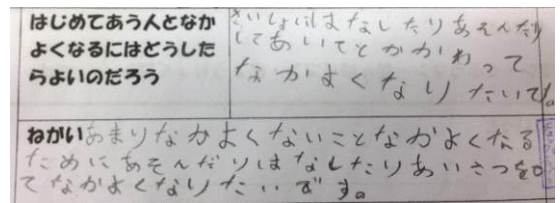 はじめてあう人となか
よくなるにはどうした
らよいのだろう
さいしょにはなしたりあそんだり
してあいてとかかわって
なかよくなりたいです
ねがい あまりなかよくないことなかよくなる
ためにあそんだりはなしたりあいさつを
てなかよくなりたいです。